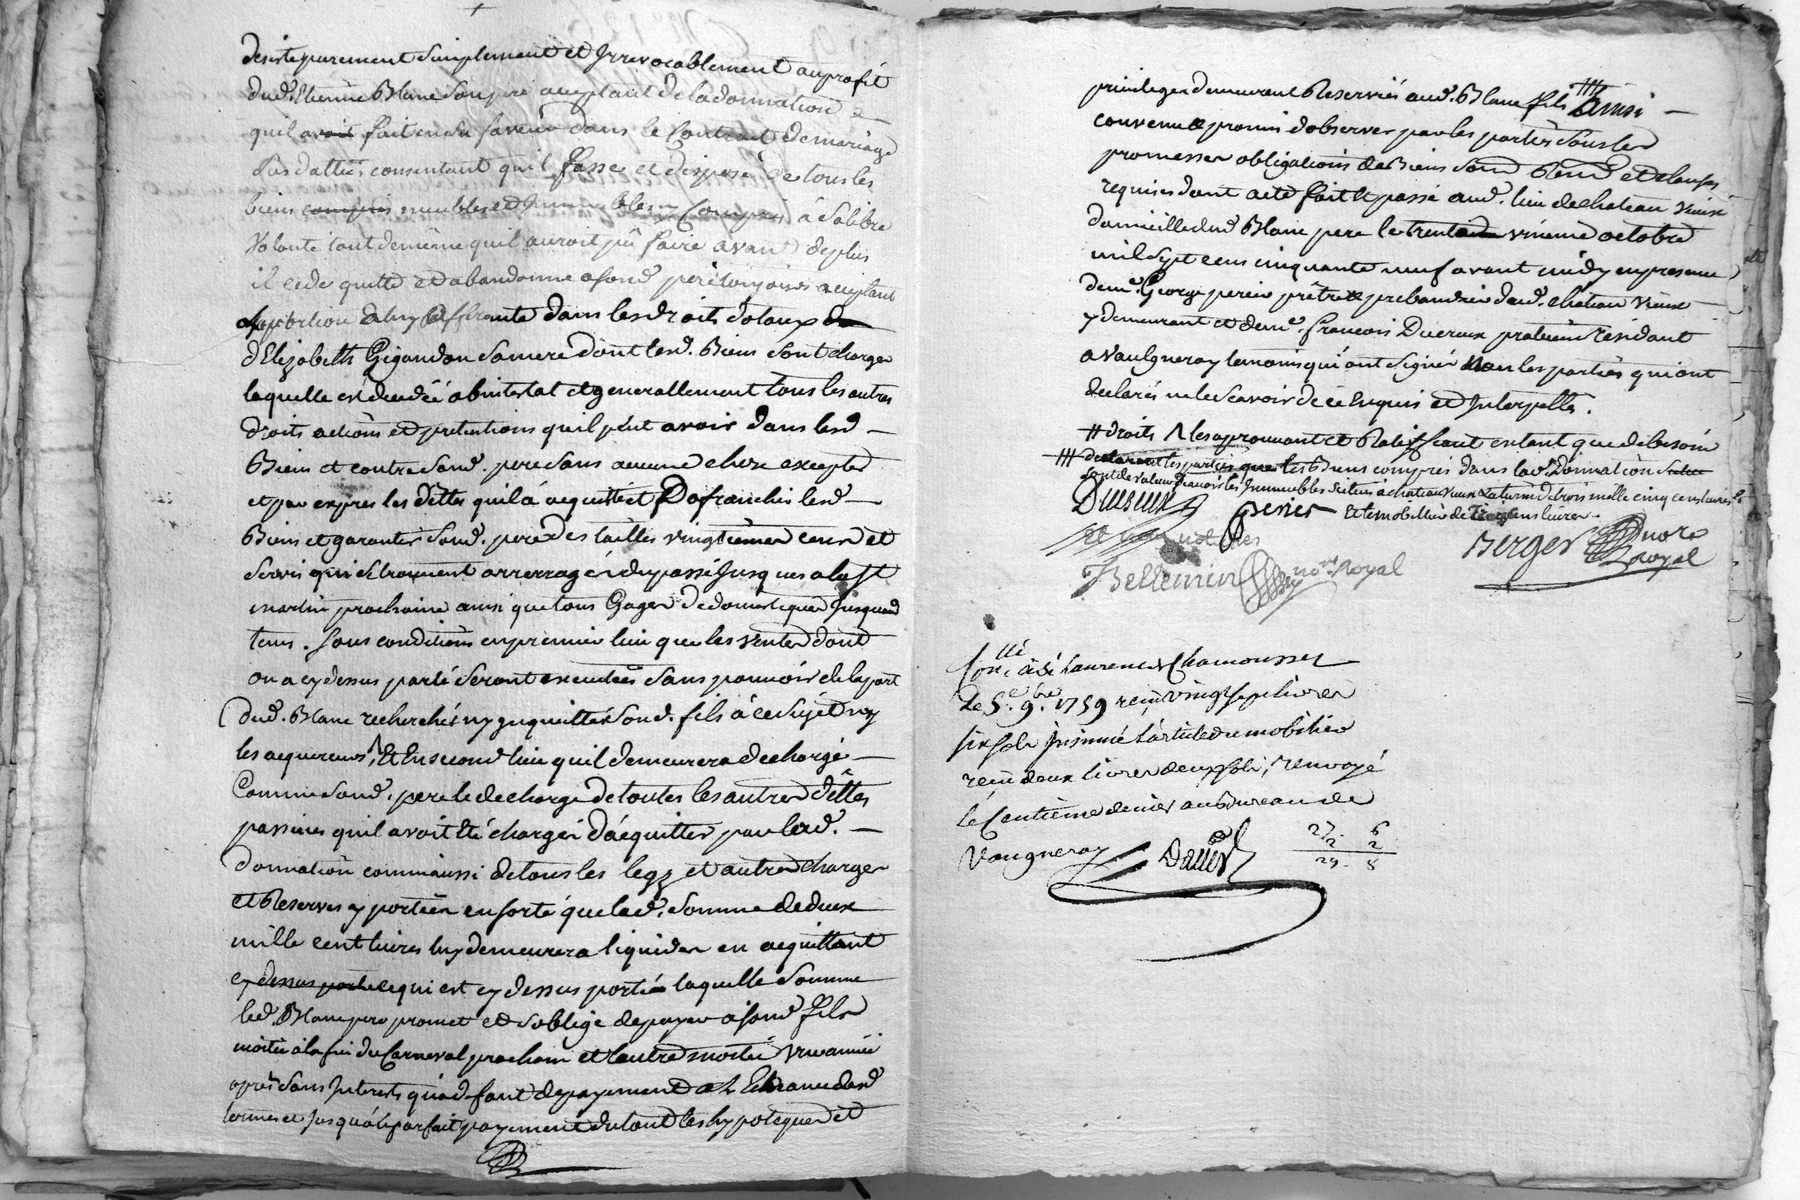 desiste purement simplement et Irrevocablement au profit
dud. Etienne Blanc son pere acceptant de la donnation
quil avoit fait en sa faveur dans le Contract de mariage
sus datté, consentant qu'il fasse et dispose de tous les
biens compris meubles et Immeubles y Compris à sa libre
Volonté tout de même quil auroit pû faire avant de plus
il cede quitte et abandonne a sond. pere toujours acceptant
la portion a luy afferante dans les droits dotaux de
d'Elizabeth Gigandon sa mere dont lesd. Biens sont charges
laquelle est decedée abintestat et generallement tous les autres
droits actions et pretentions quil peut avoir dans lesd
Biens et contre sond. pere sans aucune chose excepter
et par exprès les dettes quil a acquitté et D'afranchir lesd
Biens et garantir sond. pere des tailles vingtiemes cens et
servis qui se trouvent arrerragés du passé Jusques a la St
martin prochaine ainsi que tous Gages de domestiques Jusquaud
tems. sous conditions en premier lieu que les ventes dont
on a cy dessus parlé seront executées sans pouvoir de la part
dud. Blanc rechercher ny inquietter sond. fils à ce sujet ny
les acquereurs, Et en second lieu quil demeurera dechargé
Comme sond. pere le decharge de toutes les autres dettes
passives quil avoit été chargé d'acquitter par lad.
donnation comme aussi de tous les legs et autres charges
et Reserves y portées en sorte que lad. somme de deux
mille cent livres luy demeurera liquide en acquittant
cy dessus porté ce qui est cy dessus porté laquelle somme
led. Blanc pere promet et s'oblige de payer a sond fils
moitié à la fin du Carneval prochain et l'autre moitié une année
après sans Interests qu'a deffaut de payement a L'Echeance desd
termes et Jusqu'a parfait payement du tout les hypoteques et
privileges demeurent Reservés aud. Blanc fils ainsi
convenu & promis d'observer par les parties sous les
promesses obligations de Biens soumd Renond et clauses
requises dont acte fait & passé aud. lieu de chateau vieux
domicille dud Blanc pere le trente vnieme octobre
mil sept cens cinquante neuf avant midy en presence
de mre George perier prêtre prebandier dud. chateau vieux
y demeurant et de me. francois Ducreux praticien residant
a Vaulgneray temoins qui ont signé Non les parties qui ont
declarés ne le scavoir de ce Enquis et Interpellés.
# droits /\ les aprouvant et Ratiffiant en tant que de besoin
declarant les parties que les Biens compris dans lad. donnation
sont de valeur scavoir les Immeubles situés à chateau vieux & a turin de trois mille cinq cens livres
Et le mobillier de livres.
Ducreux perier
Berger Notre
Royal
Bellemin nore Royal
Conlle à St Laurent de Chamousset
Le 5e. 9bre. 1759 reçu vingt sept livres
six sols Insinué L'article du mobilier
reçu deux livres deux sols, renvoyé
le Centieme denier au Bureau de
Vaugneray
27. 6
2 2
29. 8